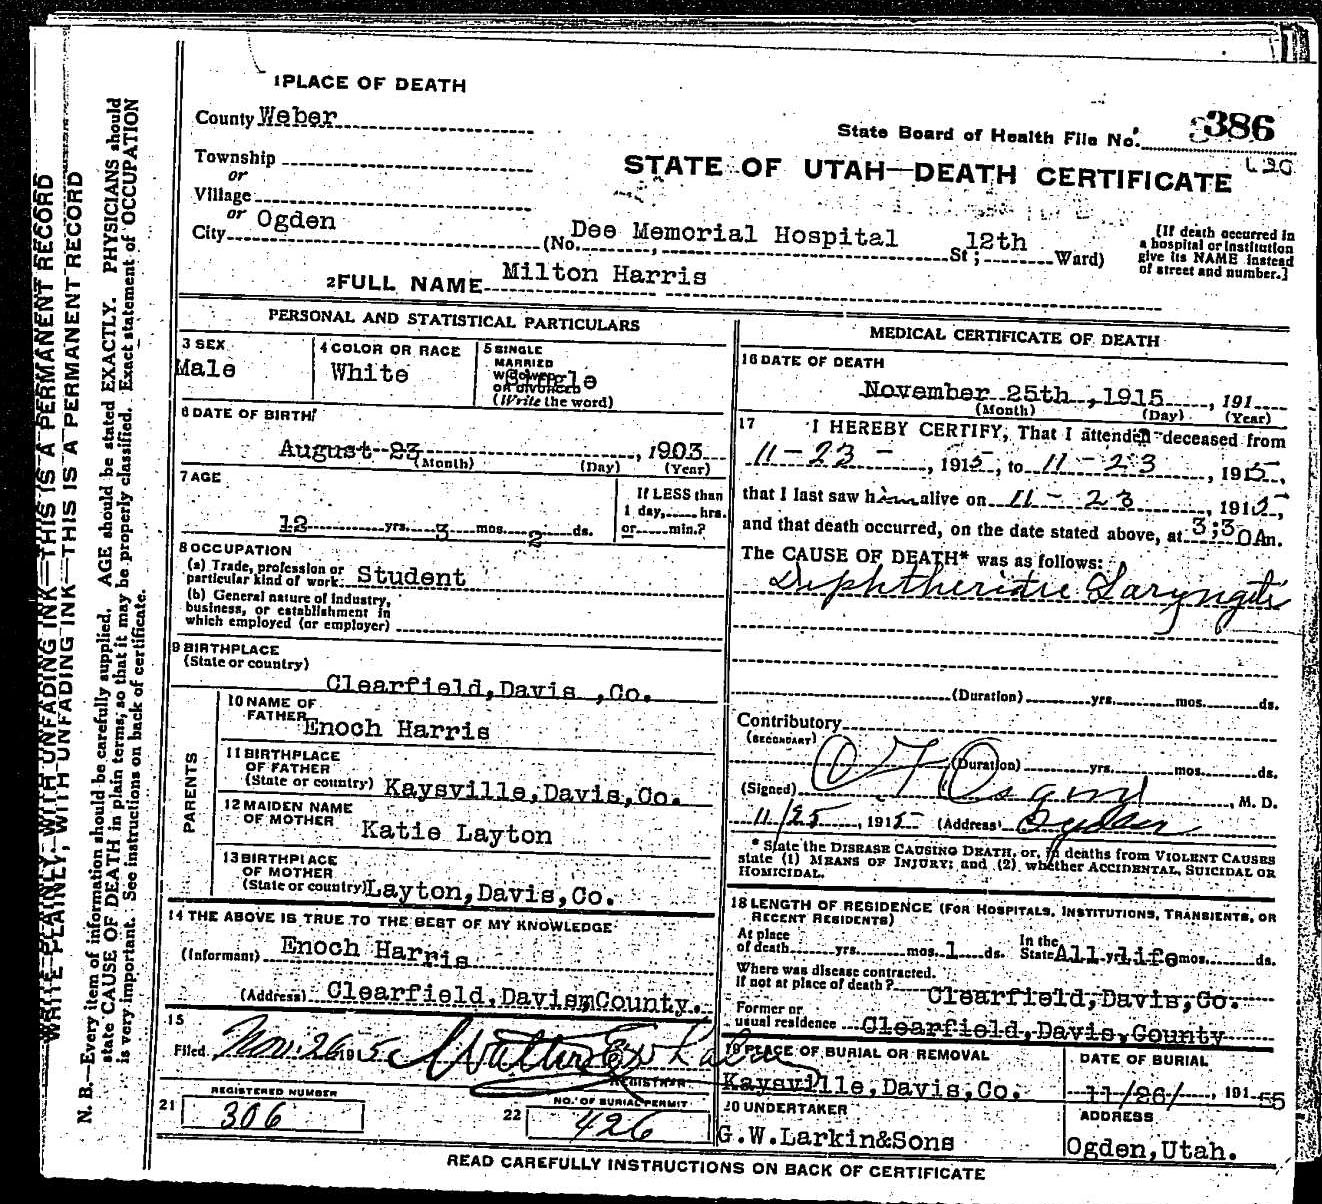 1 PLACE OF DEATH
County Weber
State Board of Health File No. 386
Township
or
Village
or
City Ogden
STATE OF UTAH—DEATH CERTIFICATE
(No. Dee Memorial Hospital St; 12th Ward)
[If death occurred in
a hospital or institution
give its NAME instead
of street and number.]
2 FULL NAME Milton Harris
PERSONAL AND STATISTICAL PARTICULARS
3 SEX
Male
4 COLOR OR RACE
White
5 SINGLE
MARRIED
WIDOWED
OR DIVORCED
(Write the word)
Single
6 DATE OF BIRTH
August 23, 1903
(Month) (Day) (Year)
7 AGE
12 yrs. 3 mos. 2 ds.
If LESS than
1 day, hrs.
or min.?
8 OCCUPATION
(a) Trade, profession or
particular kind of work Student
(b) General nature of industry,
business, or establishment in
which employed (or employer)
9 BIRTHPLACE
(State or country)
Clearfield, Davis ,Co.
PARENTS
10 NAME OF
FATHER Enoch Harris
11 BIRTHPLACE
OF FATHER
(State or country) Kaysville, Davis, Co.
12 MAIDEN NAME
OF MOTHER Katie Layton
13 BIRTHPLACE
OF MOTHER
(State or country) Layton, Davis, Co.
14 THE ABOVE IS TRUE TO THE BEST OF MY KNOWLEDGE
(Informant) Enoch Harris
(Address) Clearfield, Davism County.
15
Filed Nov. 26 1915 Walter
REGISTRAR
REGISTERED NUMBER
21 306
NO. OF BURIAL PERMIT
22 426
MEDICAL CERTIFICATE OF DEATH
16 DATE OF DEATH
November 25th , 1915 , 191
(Month) (Day) (Year)
17 I HEREBY CERTIFY, That I attended deceased from
11-23- , 1915, to 11-23 , 1915,
that I last saw him alive on 11-23 , 1915,
and that death occurred, on the date stated above, at 3;30 Am.
The CAUSE OF DEATH* was as follows:
Diphtheritic Laryngitis
(Duration) yrs. mos. ds.
Contributory
(SECONDARY)
(Duration) yrs. mos. ds.
(Signed) O F Osgood, M. D.
11/25, 1915 (Address) Ogden
* State the DISEASE CAUSING DEATH, or, in deaths from VIOLENT CAUSES
state (1) MEANS OF INJURY; and (2) whether ACCIDENTAL, SUICIDAL OR
HOMICIDAL.
18 LENGTH OF RESIDENCE (FOR HOSPITALS, INSTITUTIONS, TRANSIENTS, OR
RECENT RESIDENTS)
At place
of death yrs. mos. 1 ds.
In the
State All yrs. life mos. ds.
Where was disease contracted.
If not at place of death? Clearfield, Davis, Co.
Former or
usual residence Clearfield, Davis, County
19 PLACE OF BURIAL OR REMOVAL
Kaysville, Davis, Co.
DATE OF BURIAL
11/26/ , 191 55
20 UNDERTAKER
G.W.Larkin&Sons
ADDRESS
Ogden, Utah.
READ CAREFULLY INSTRUCTIONS ON BACK OF CERTIFICATE
WRITE PLAINLY, WITH UNFADING INK—THIS IS A PERMANENT RECORD
WRITE PLAINLY, WITH UNFADING INK—THIS IS A PERMANENT RECORD
N. B.—Every item of information should be carefully supplied. AGE should be stated EXACTLY. PHYSICIANS should
state CAUSE OF DEATH in plain terms, so that it may be properly classified. Exact statement of OCCUPATION
is very important. See instructions on back of certificate.